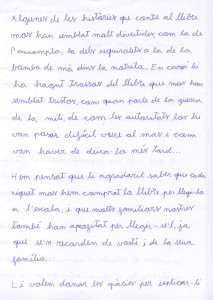 Algunes de les històries que conta al llibre
mos han semblat molt divertides, com la de
la dels seguirosets o la de la
bomba de mà dins la motxila. En canvi hi
ha hagut trossos del llibre que mos han
semblat tristos, com quan parla de la guerra,
de la mili, de com les autoritats los hi
van posar difícil veure al mas i com
van haver de deixa-lo més tard...
Hem pensat que li agradaria saber que cada
xiquet mos hem comprat lo llibre per llegi-lo
a l'escola, i que molts familiars nostres
també han aprofitat per llegir-se'l, ja
que se'n recorden de vostè i de la seua
família.
Li volem donar les gràcies per explicar-li